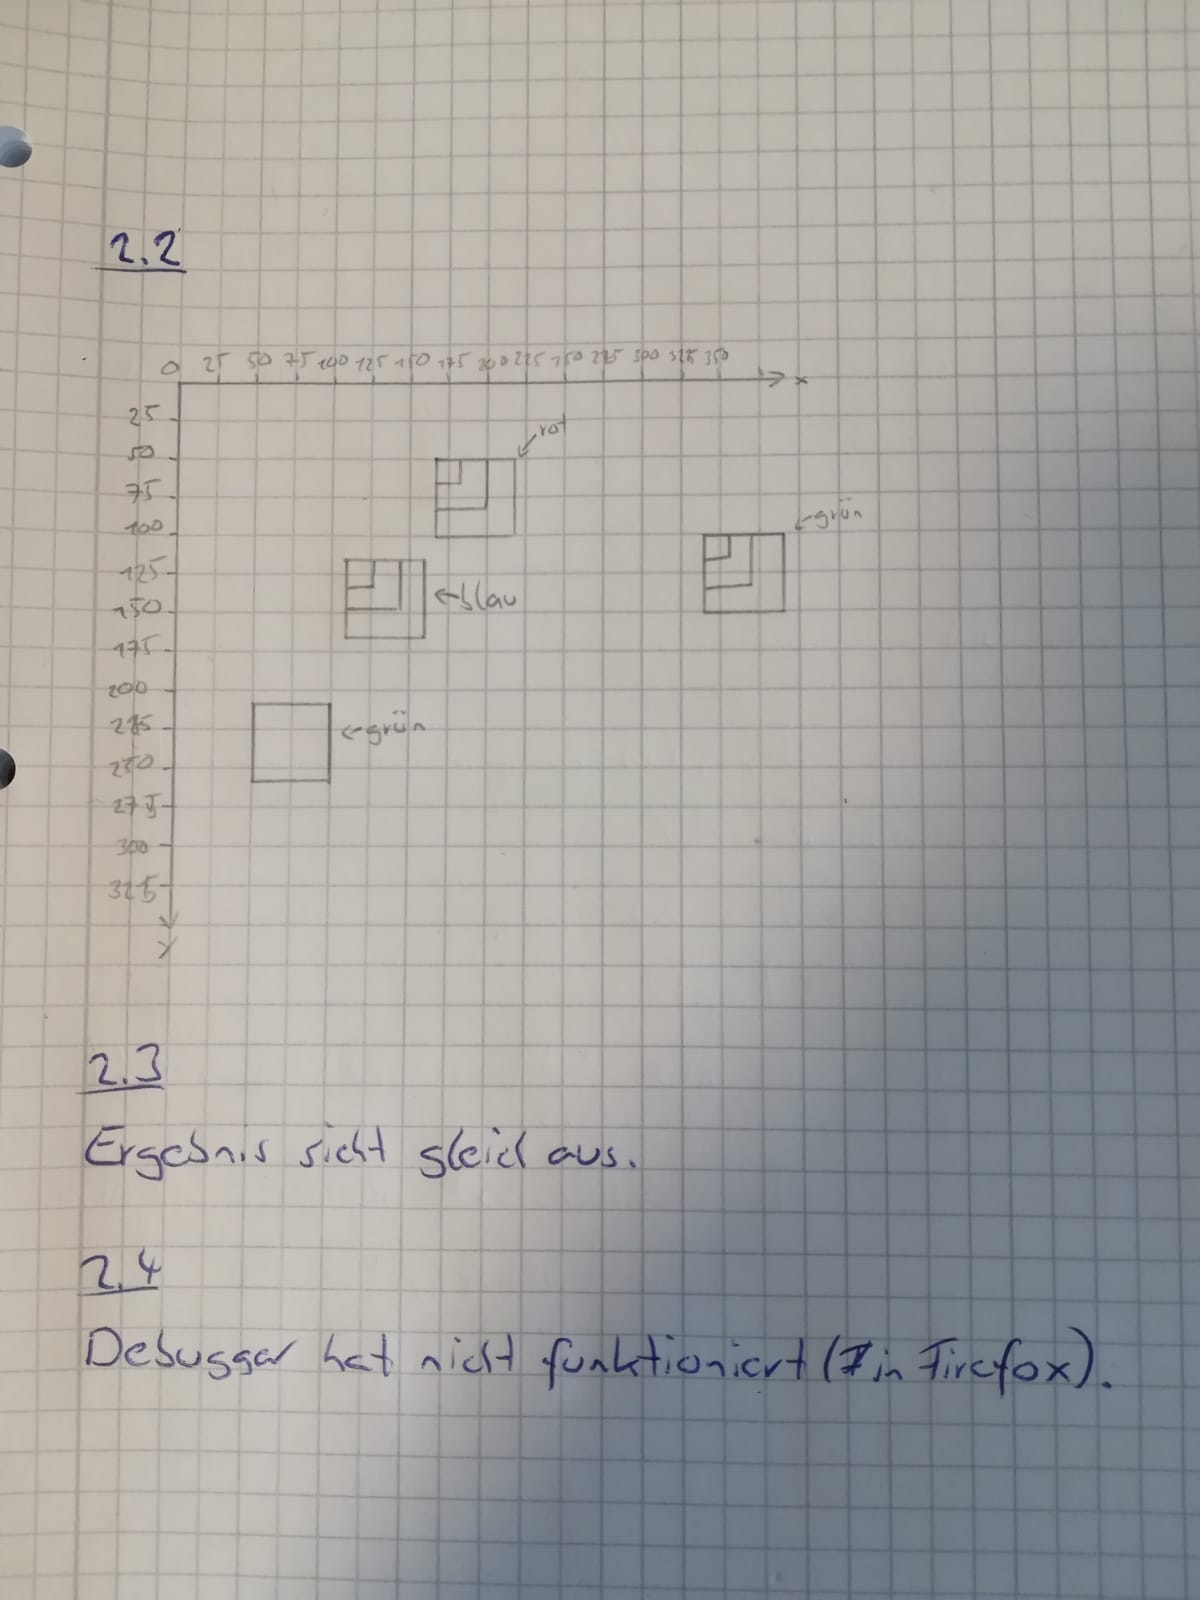 2.2
0 25 50 75 100 125 150 175 200 225 250 275 300 325 350
x
25
rot
50
75
grün
100
125
←blau
150
175
200
225
←grün
250
275
300
325
y
2.3
Ergebnis sieht gleich aus.
2.4
Debugger hat nicht funktioniert (in Firefox).